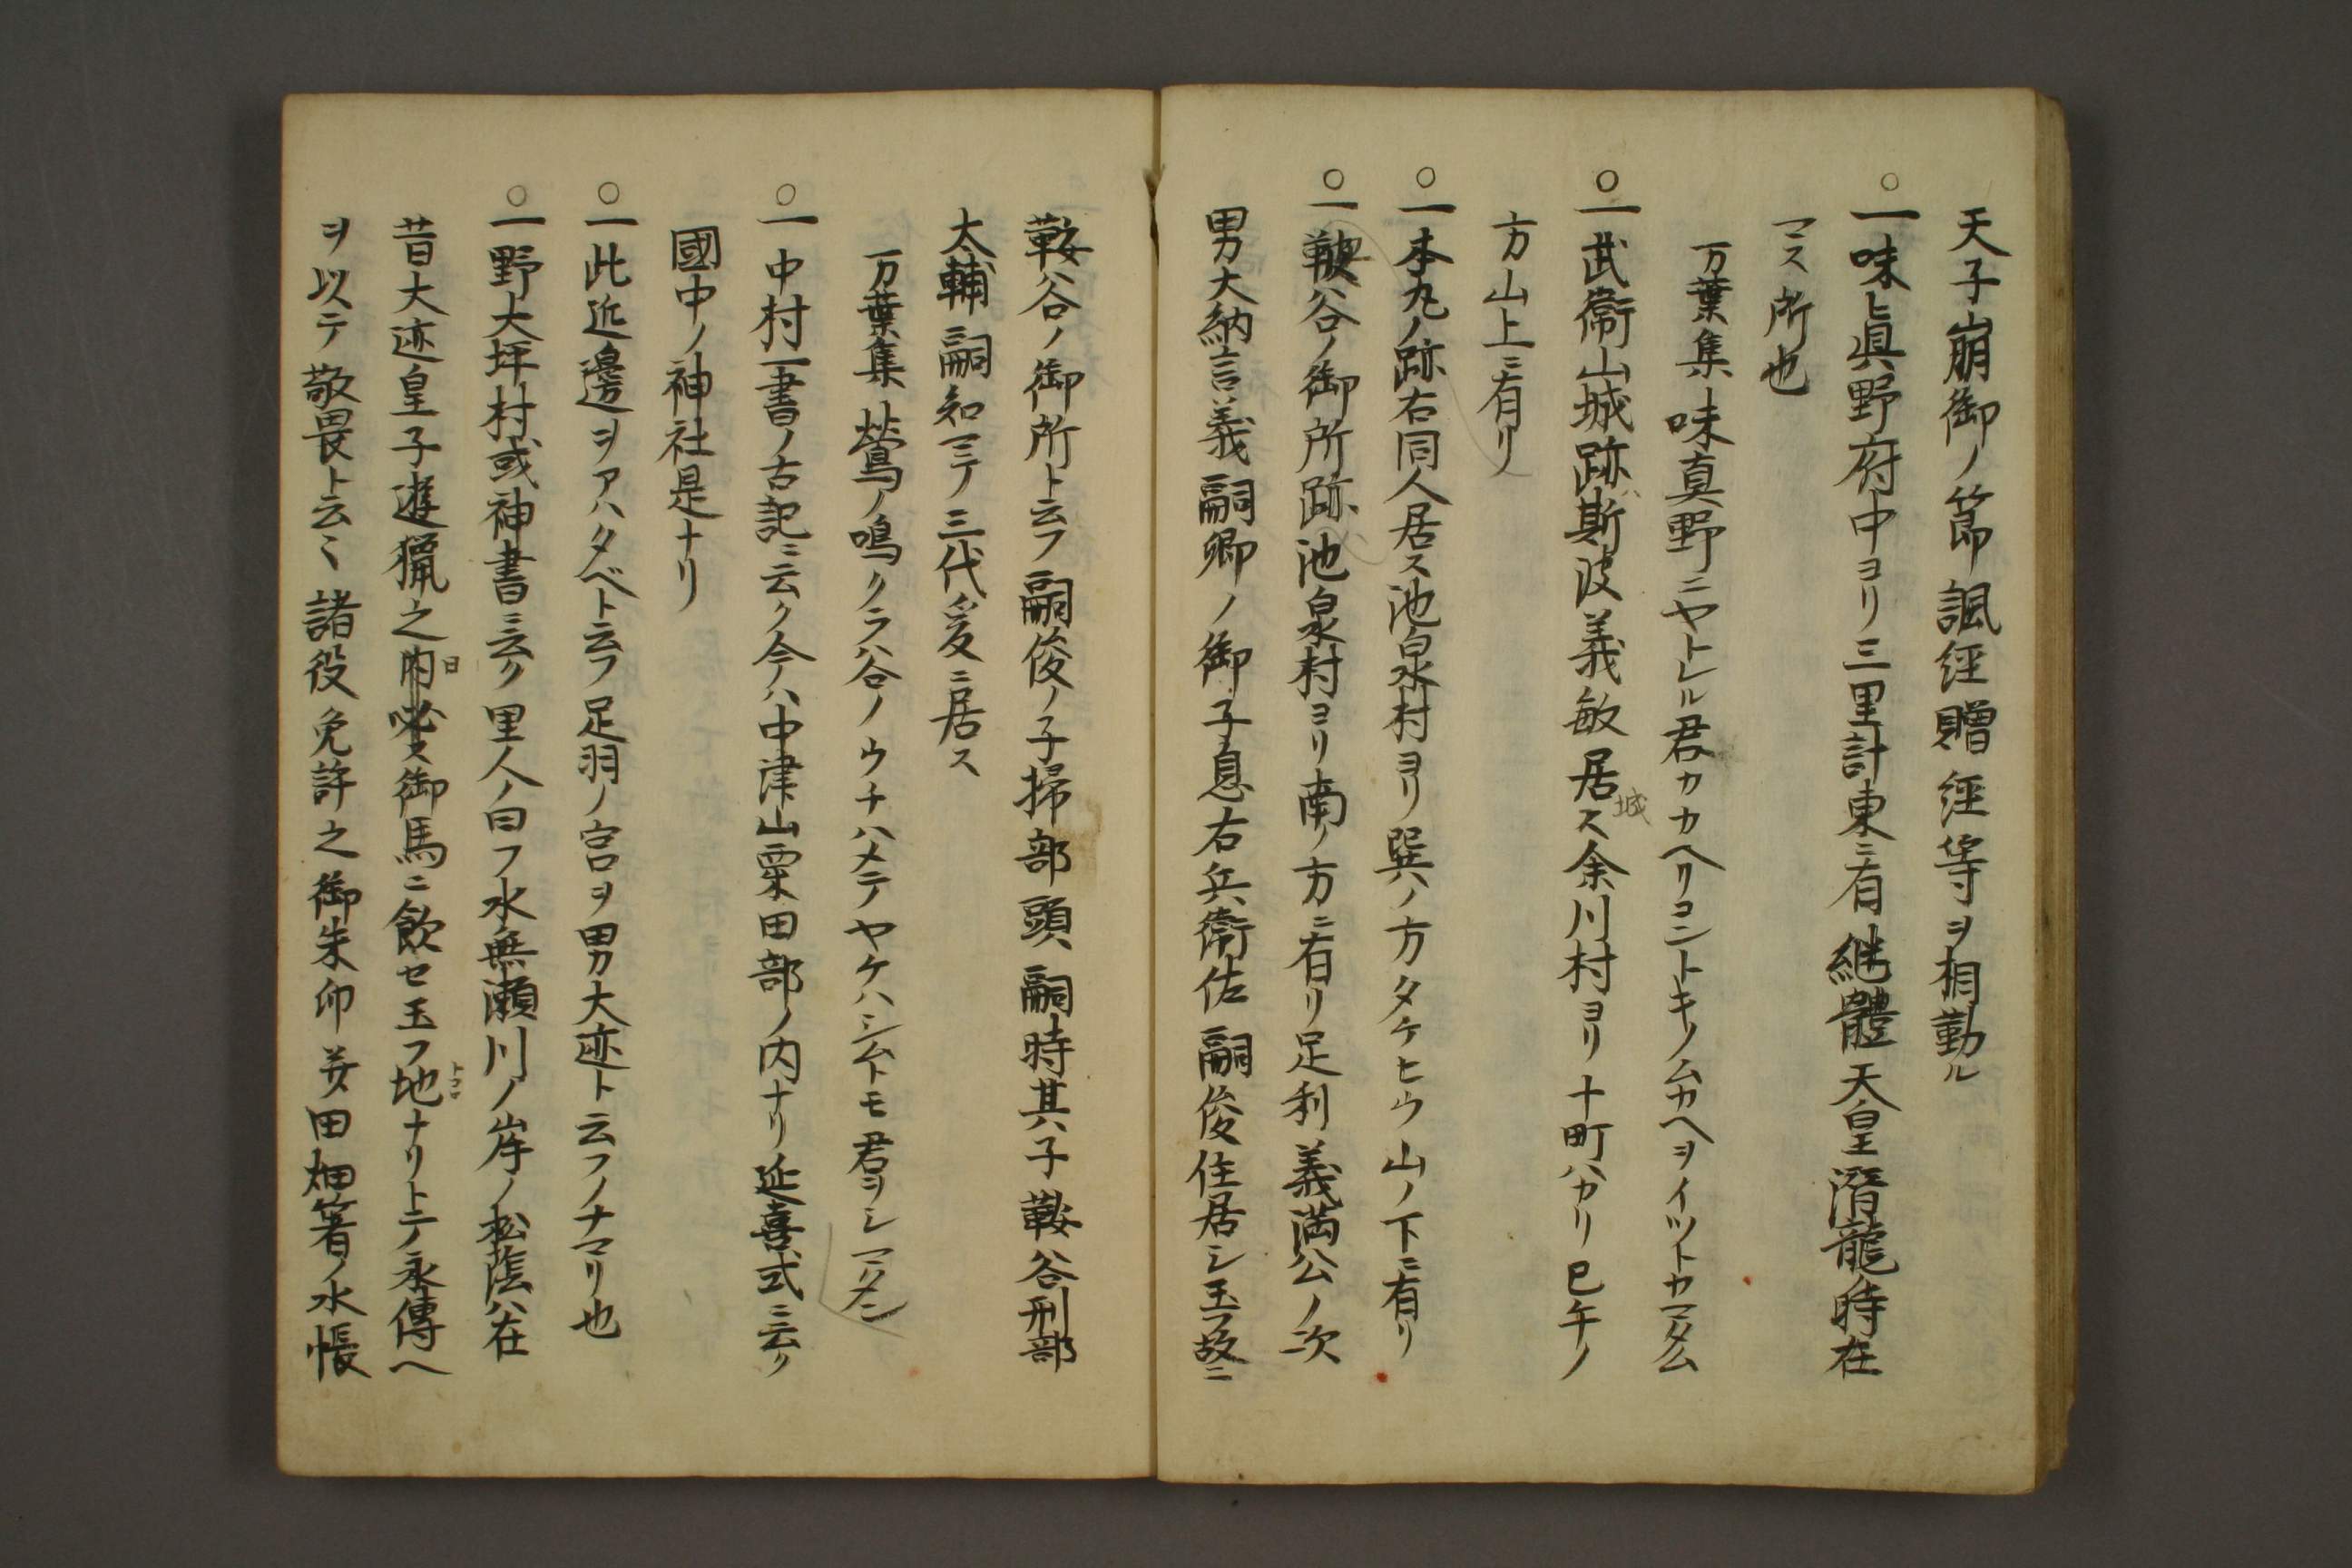 天子崩御ノ節諷経贈經等ヲ相勤ル
○一味ヒ眞野府中ヨリ三里計東ニ有継體天皇潛龍時在
マス所也
万葉集味真野ニヤトレル君カカヘリコントキノムカヘヲイツトカマタム
○一武衞山城跡ハ斯波義敏居城ス余川村ヨリ十町ハカリ巳午ノ
方山上ニ有リ
○一本丸ノ跡右同人居ス池泉村ヨリ巽ノ方タケヒウ山ノ下ニ有リ
○一鞍谷ノ御所跡池泉村ヨリ南ノ方ニ有リ足利義満公ノ次
男大納言義嗣卿ノ御子息右兵衞佐嗣俊住居シ玉フ故ニ
鞍谷ノ御所ト云フ嗣俊ノ子掃部頭嗣時其子鞍谷刑部
太輔嗣知マテ三代爰ニ居ス
万葉集鶯ノ鳴クラ谷ノウチハメテヤケハシムトモ君ヲシマタン
○一中村一書ノ古記ニ云ク今ハ中津山粟田部ノ内ナリ延喜式ニ云ク
國中ノ神社是ナリ
○一此近邊ヲアハタベト云フ足羽ノ宮ヲ男大迹ト云フノナマリ也
○一野大坪村或神書ニ云ク里人ノ曰フ水無瀬川ノ岸ノ松蔭ハ在
昔大迹皇子遊猟之日必ス御馬ニ飲セ玉フ地トコロナリトテ永傳ヘ
ヲ以テ敬畏ト云々諸役免許之御朱印并田畑等ノ水帳